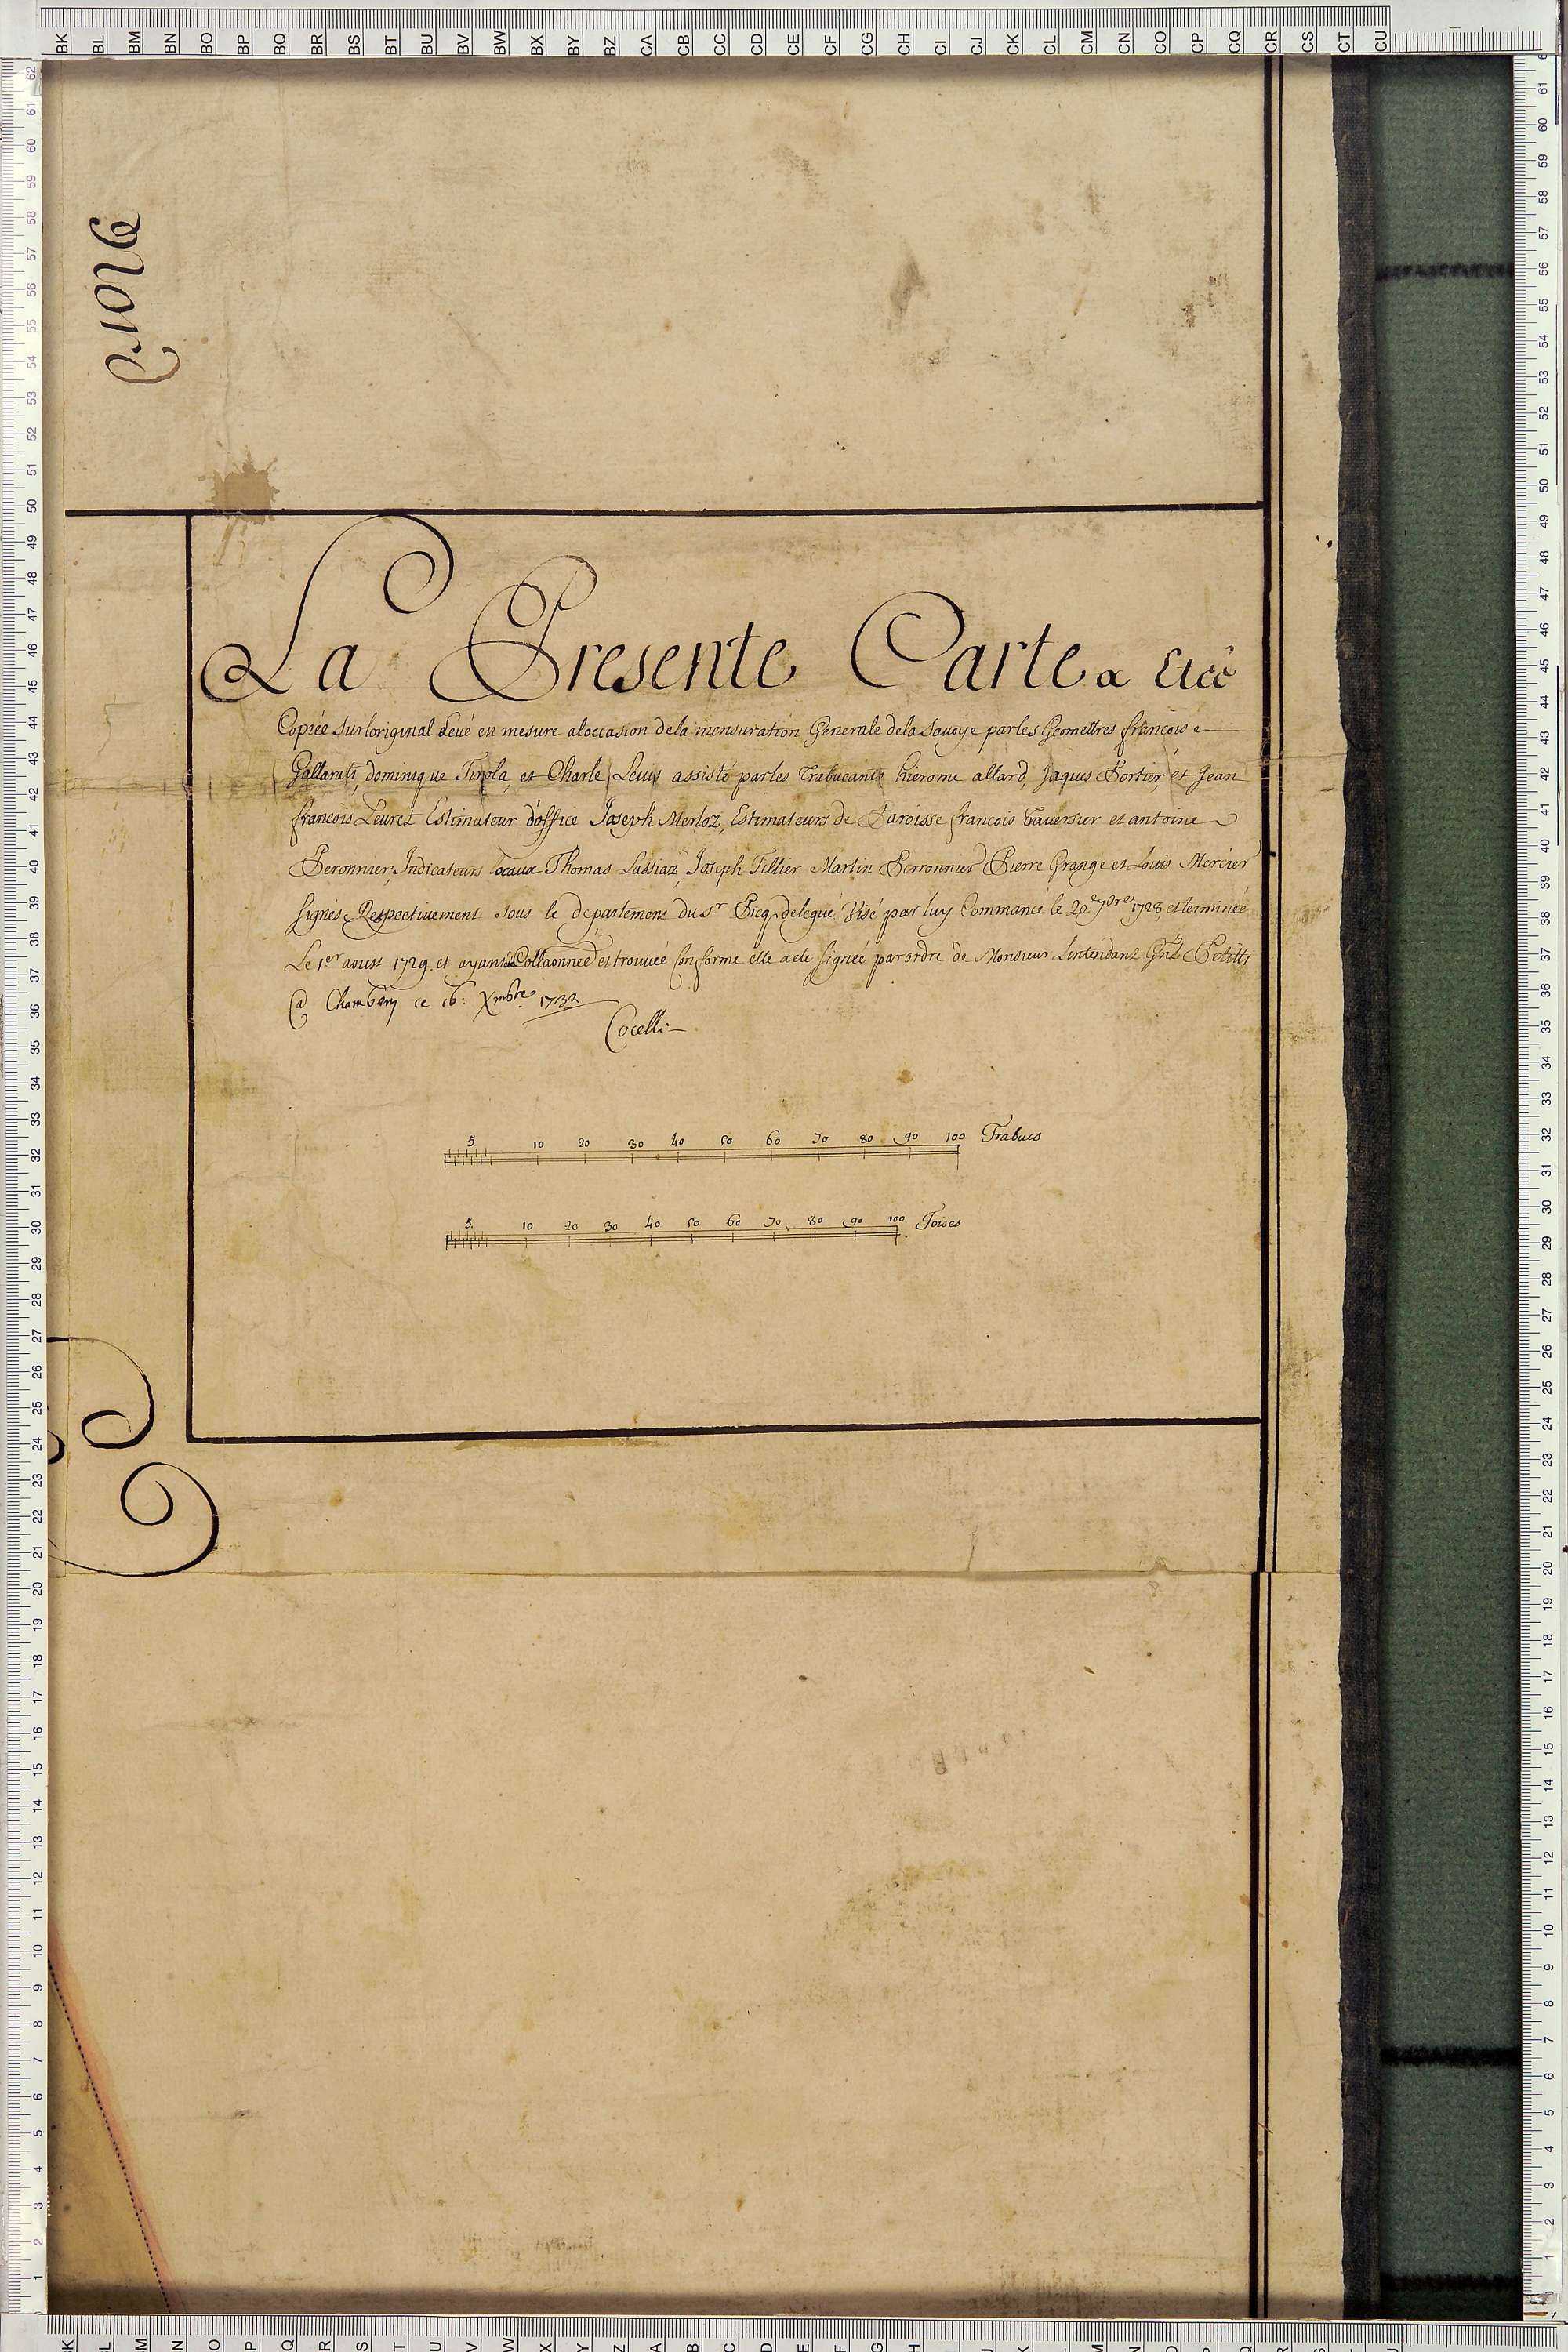 La Presente Carte a Eteé
Copiée Surloriginal Levé en mesure aloccasion dela mensuration Generale dela Savoye parles Geomettres françois
Gallarati, dominique Tirola, et Charle Leuis assisté parles Trabucants hierome allard, Jaques Portier, et Jean
francois Leuret Estimateur d'office Joseph Merloz, Estimateurs de Paroisse francois Taversier et antoine
Peronnier, Indicateurs locaux Thomas Lassiaz, Joseph Tillier Martin Perronnier Pierre Grange et Louis Mercier
signés Respectivement sous le departement du Sr Picq delegué Visé par luy Commancé le 20 7bre 1728, et terminée
Le 1er aoust 1729. et ayant eté Collaonneé et trouveé Conforme elle a ete signée parordre de Monsieur Lintendant Gnl Petitti
a Chambery ce 16: Xmbre 1732
Cocelli
5. 10 20 30 40 50 60 70 80 90 100 Trabucs
5. 10 20 30 40 50 60 70 80 90 100 Toises